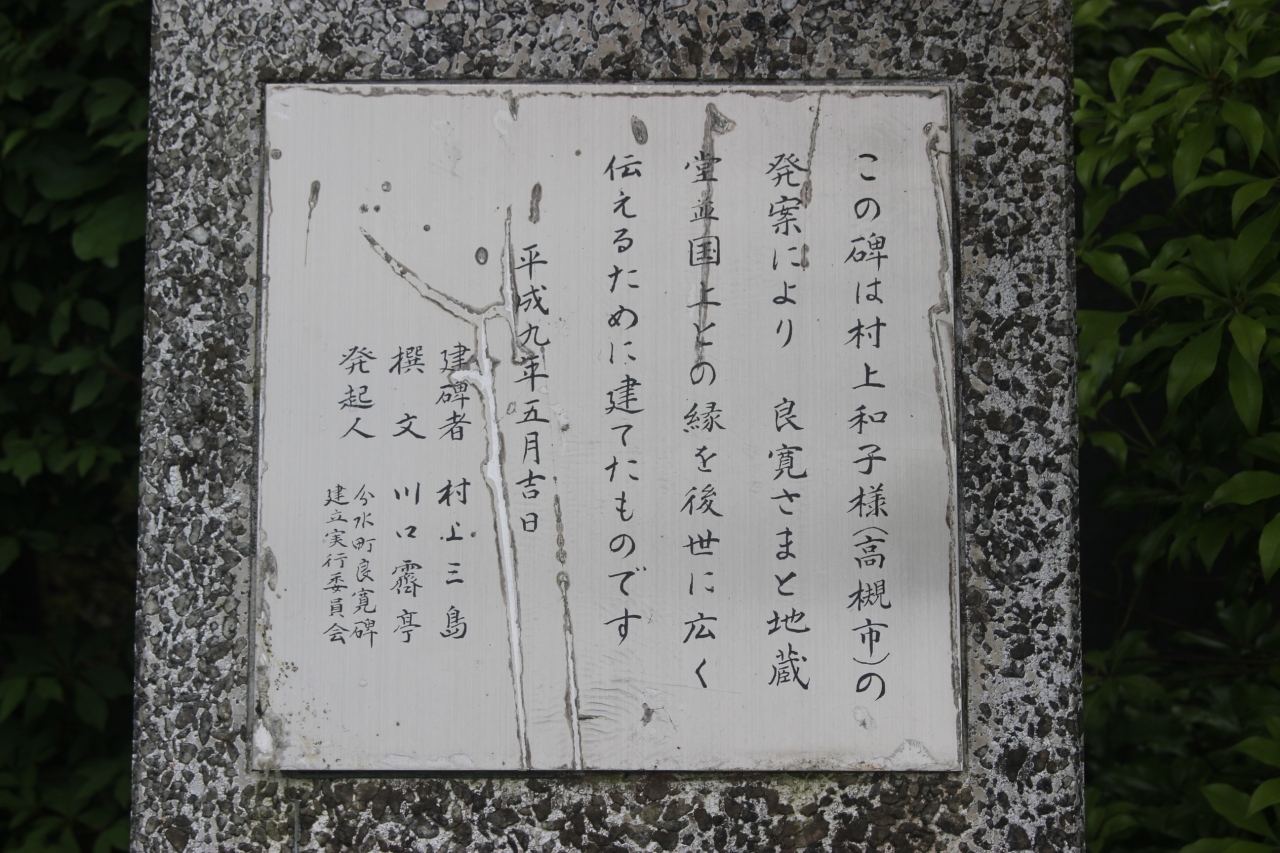 この碑は村上和子様(高槻市)の
発案により　良寛さまと地蔵
堂並国上との縁を後世に広く
伝えるために建てたものです
平成九年五月吉日
建碑者　村上三島
撰文　川口霽亭
発起人　分水町良寛碑
建立実行委員会